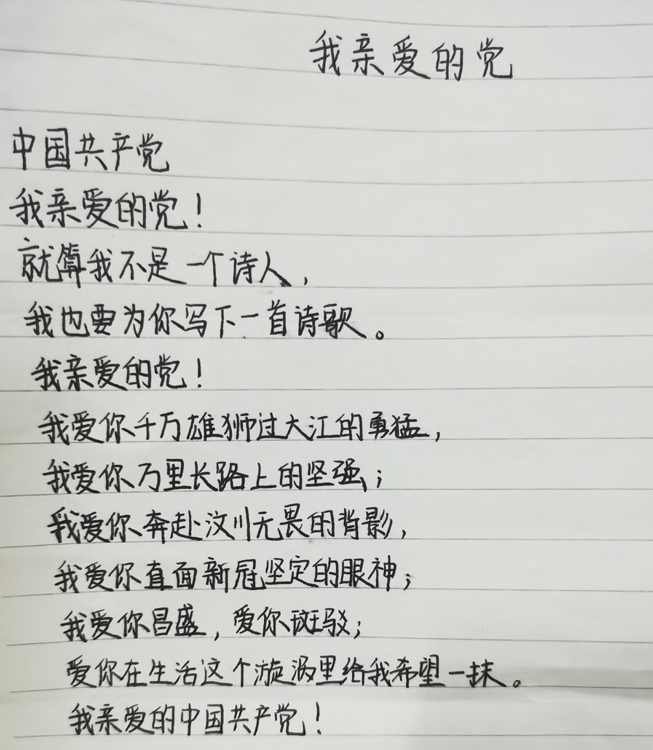 我亲爱的党
中国共产党
我亲爱的党！
就算我不是一个诗人，
我也要为你写下一首诗歌。
我亲爱的党！
我爱你千万雄狮过大江的勇猛，
我爱你万里长路上的坚强；
我爱你奔赴汶川无畏的背影，
我爱你直面新冠坚定的眼神；
我爱你昌盛，爱你斑驳；
爱你在生活这个漩涡里给我希望一抹。
我亲爱的中国共产党！